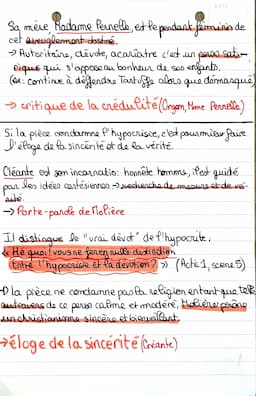 Sa mère Madame Pernelle, est le pendant féminin de
cet aveuglement obstiné.
→ Autoritaire, dévote, acariâtre c'est un perso sati-
rique qui s'oppose au bonheur de ses enfants.
(ex: continue à déffendre Tartuffe alors que démasqué)
→ critique de la crédulité (Orgon, Mme Pernelle)
Si la pièce condamne l'hypocrisie, c'est pour mieux faire
l'éloge de la sincérité et de la vérité.
Cléante est son incarnatio: honnête homme, il est guidé
par les idées cartésiennes → recherche de mesure et de vé-
rité.
→ Porte-parole de Molière
Il distingue le "vrai dévot" de l'hypocrite:
« Hé quoi! vous ne ferez nulle distinction
Entre l'hypocrisie et la dévotion? » (Acte 1, scene 5)
→ la pièce ne condamne pas la religion en tant que telle
au travers de ce perso calme et modéré, Molière prône
un christianisme sincère et bienveillant.
→ éloge de la sincérité (Cléante)